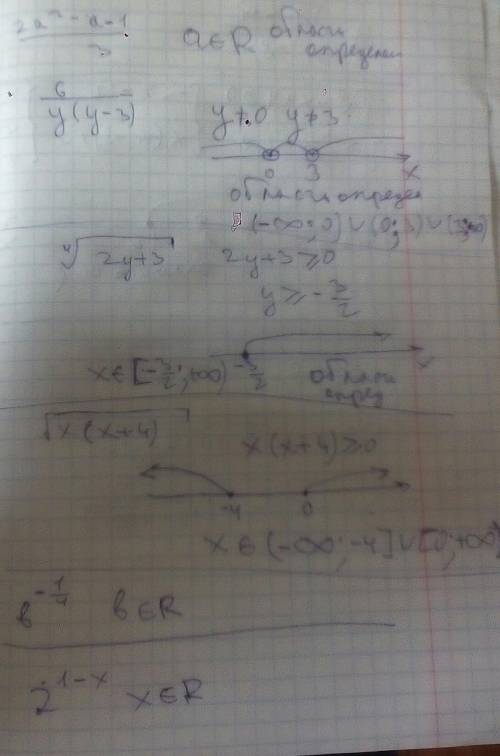 2a² - a - 1 / 3   a ∈ R   область определен
6 / y(y-3)   y ≠ 0   y ≠ 3
0   3   x
область определ
(-∞; 0) ∪ (0; 3) ∪ (3; ∞)
⁴√2y+3   2y+3 ≥ 0
y ≥ -3/2
x ∈ [-3/2; +∞)   -3/2   область опред   x
√x(x+4)   x(x+4) ≥ 0
-4   0
x ∈ (-∞; -4] ∪ [0; +∞)
в^(-1/4)   в ∈ R
2^(1-x)   x ∈ R